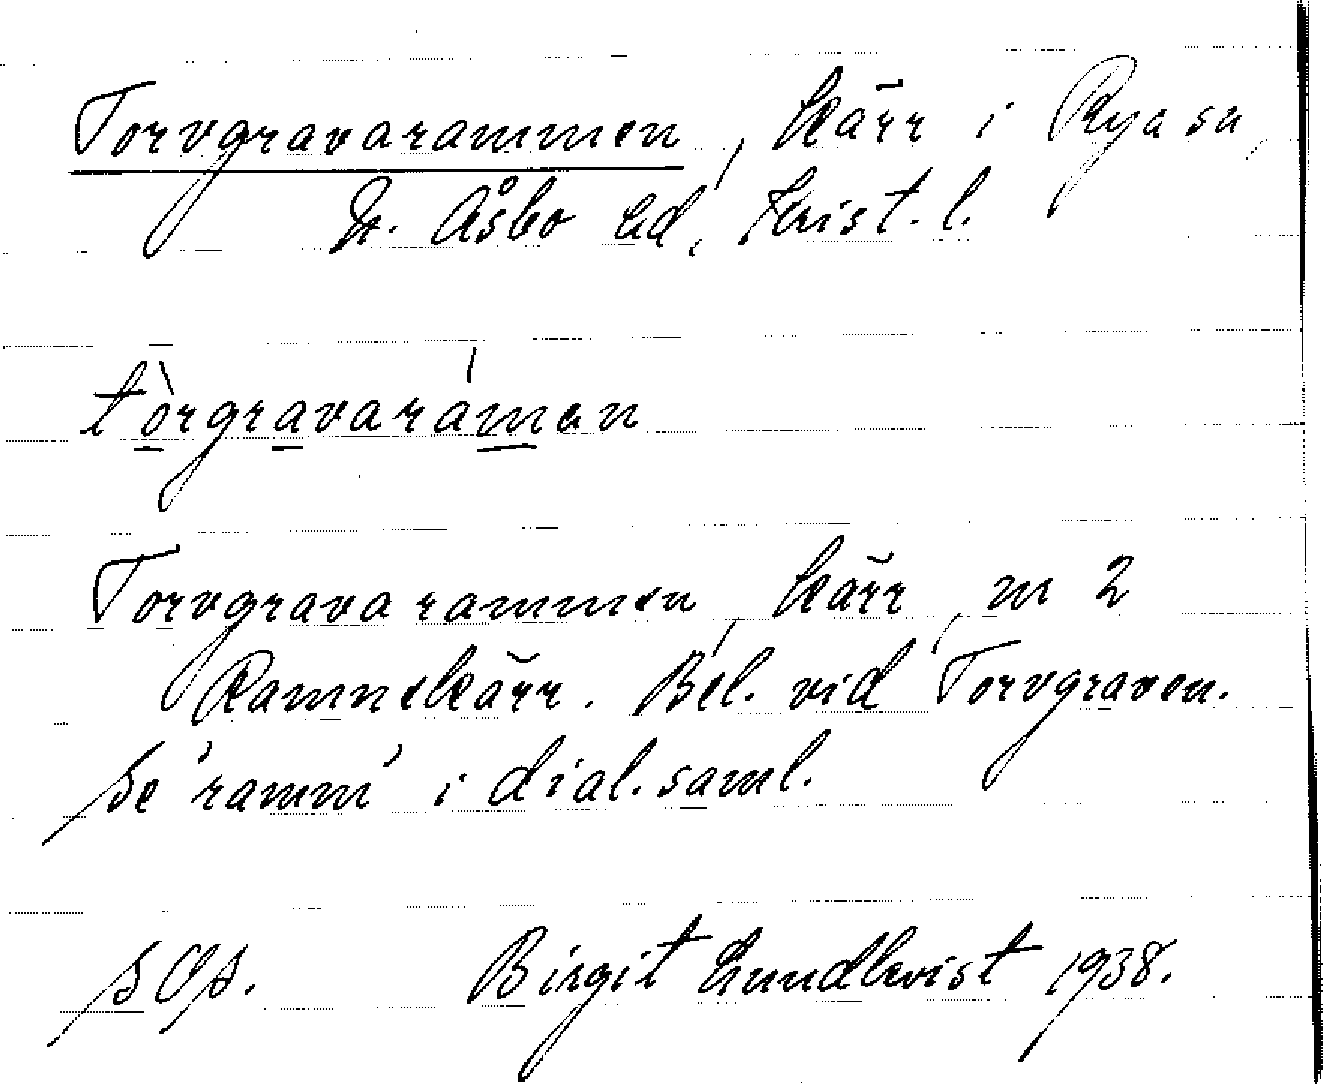 Torvgravarammen, kärr i Rya sn,
N. Åsbo hd, Krist. l.
tòrgravarámen
Torvgravarammen, kärr, m 2
Ramnekärr. Bel. vid Torvgraven.
Se 'ramm' i dial.saml.
SOA. Birgit Lundkvist 1938.